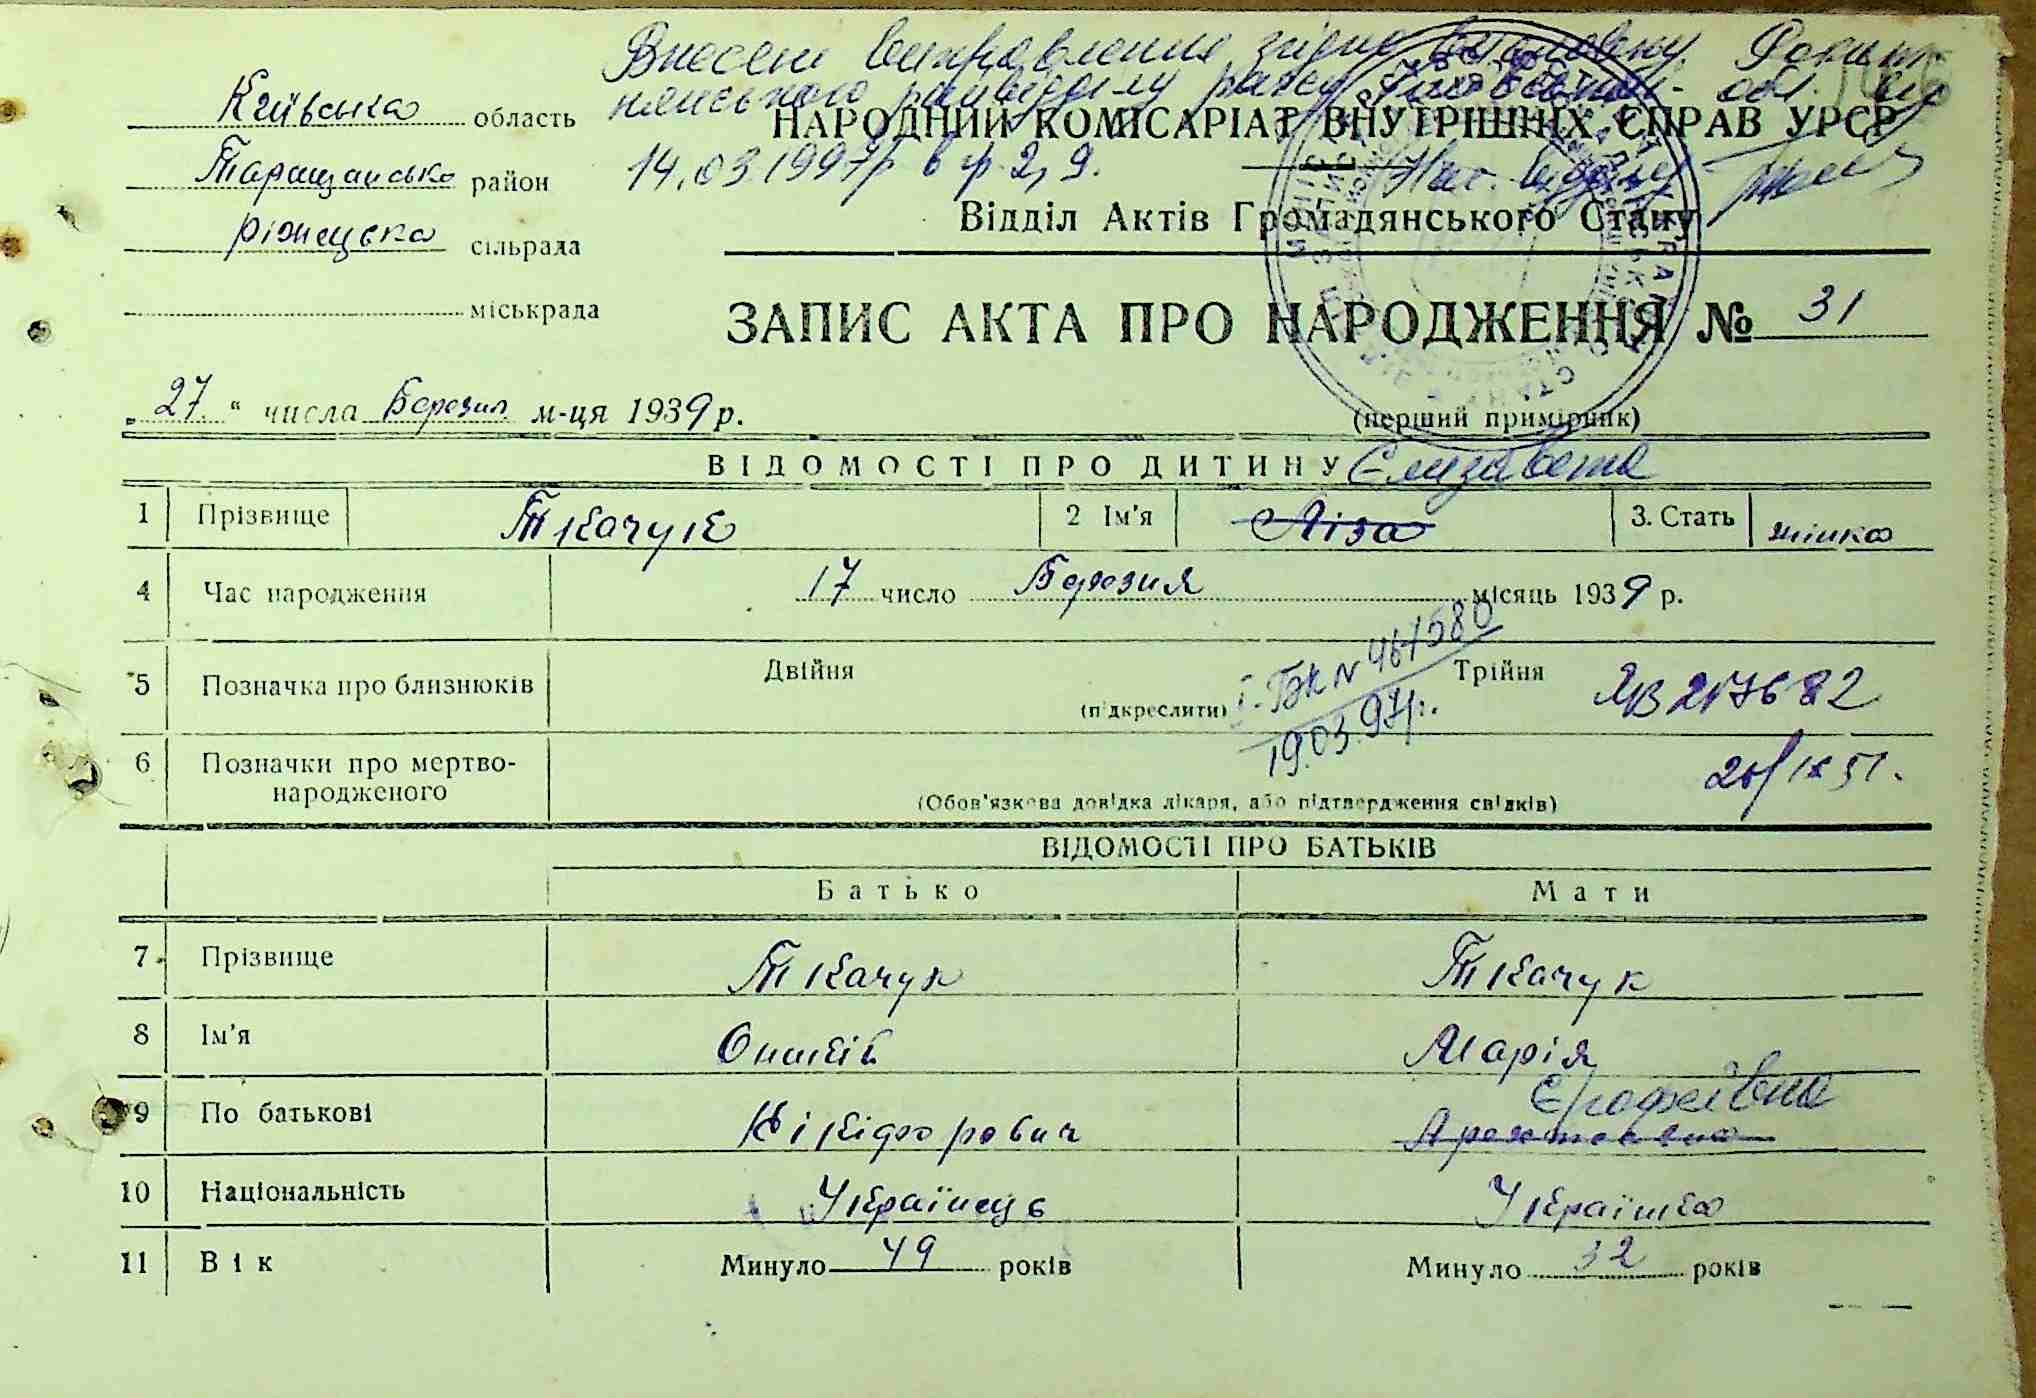 Внесені виправлення згідно висновку
райвідділу обл. від
14.03.1997р в гр. 2, 9.
Київська область
НАРОДНИЙ КОМІСАРІАТ ВНУТРІШНІХ СПРАВ УРСР
Таращанська район
Відділ Актів Громадянського Стану
сільрада
міськрада
ЗАПИС АКТА ПРО НАРОДЖЕННЯ № 31
„27“ числа Березня м-ця 1939 р.
(перший примірник)
ВІДОМОСТІ ПРО ДИТИНУ Єлизавета
1 Прізвище Ткачук 2 Ім'я Ліза 3. Стать жінка
4 Час народження 17 число Березня місяць 1939 р.
5 Позначка про близнюків Двійня (підкреслити) Трійня
І-БК № 461580
19.03.97р.
ЯВ 217682
6 Позначки про мертвонародженого
(Обов'язкова довідка лікаря, або підтвердження свідків)
26/IX 51.
ВІДОМОСТІ ПРО БАТЬКІВ
Батько Мати
7 Прізвище Ткачук Ткачук
8 Ім'я Марія
Єрофеївна
9 По батькові Нікіфорович
10 Національність Українець Українка
11 Вік Минуло 49 років Минуло 32 років